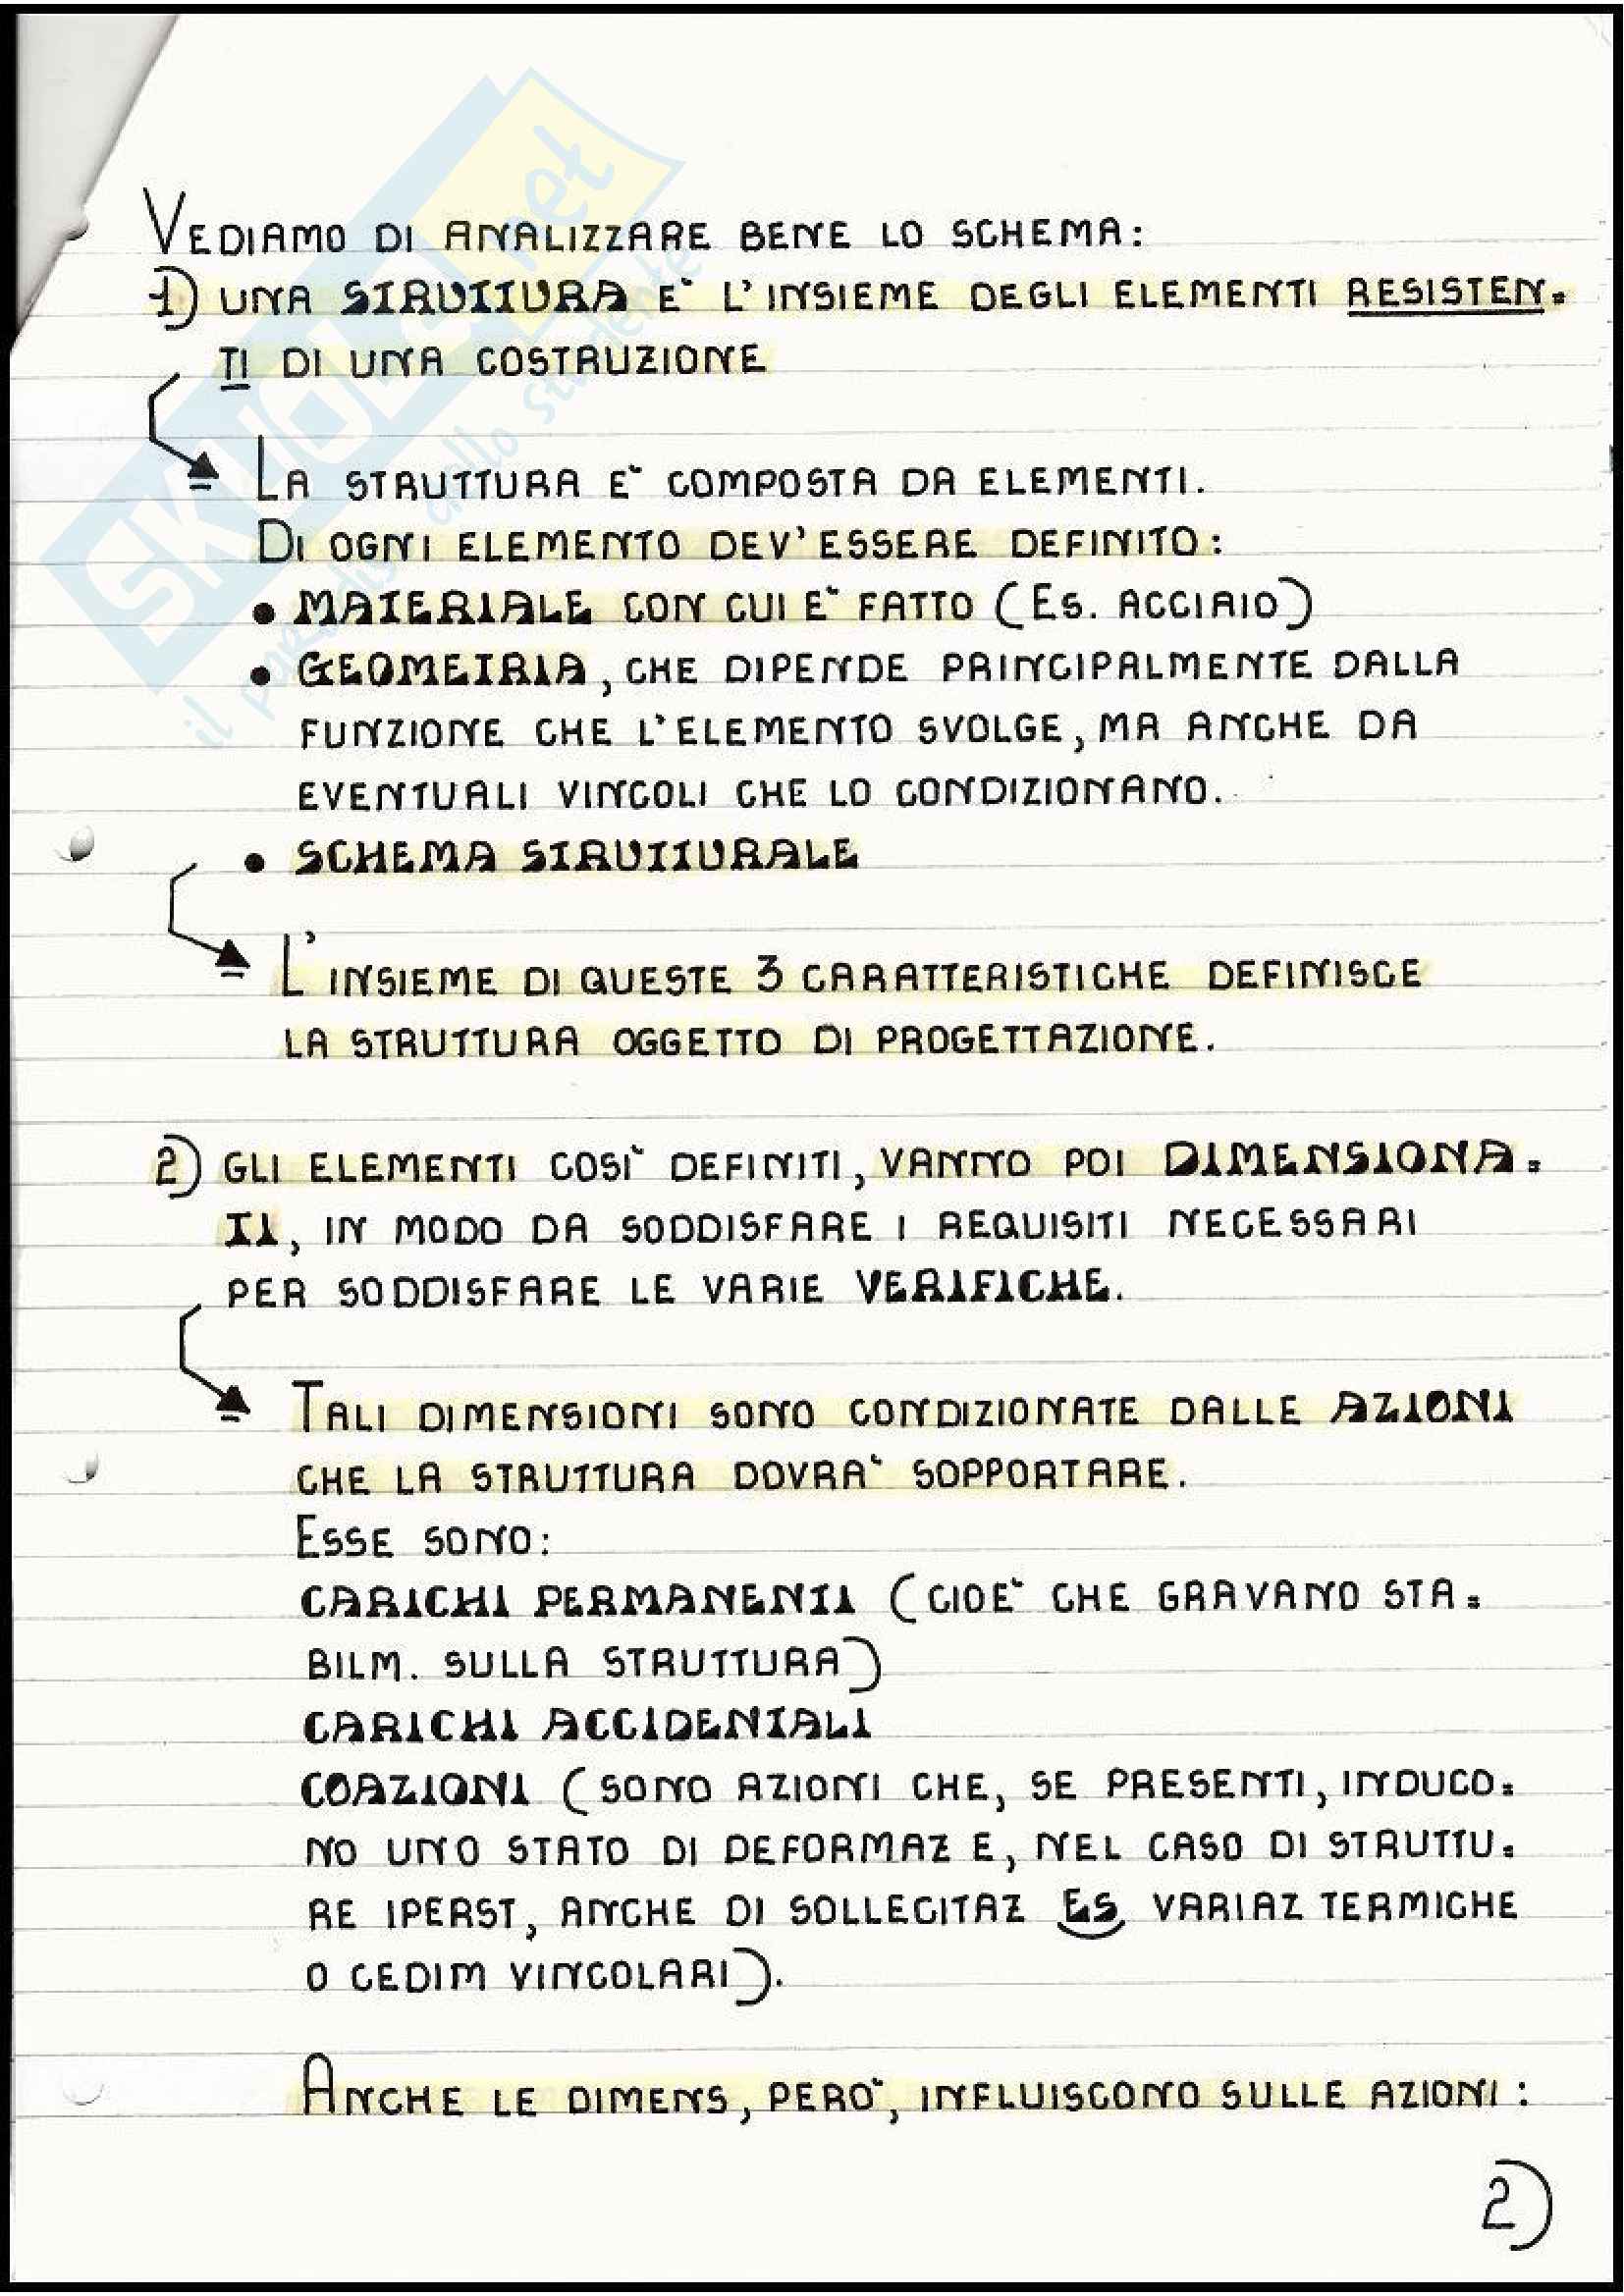 VEDIAMO DI ANALIZZARE BENE LO SCHEMA:
1) UNA STRUTTURA E` L'INSIEME DEGLI ELEMENTI RESISTEN=
TI DI UNA COSTRUZIONE
LA STRUTTURA E` COMPOSTA DA ELEMENTI.
DI OGNI ELEMENTO DEV'ESSERE DEFINITO:
• MATERIALE CON CUI E` FATTO (ES. ACCIAIO)
• GEOMETRIA, CHE DIPENDE PRINCIPALMENTE DALLA
FUNZIONE CHE L'ELEMENTO SVOLGE, MA ANCHE DA
EVENTUALI VINCOLI CHE LO CONDIZIONANO.
• SCHEMA STRUTTURALE
L'INSIEME DI QUESTE 3 CARATTERISTICHE DEFINISCE
LA STRUTTURA OGGETTO DI PROGETTAZIONE.
2) GLI ELEMENTI COSI` DEFINITI, VANNO POI DIMENSIONA=
TI, IN MODO DA SODDISFARE I REQUISITI NECESSARI
PER SODDISFARE LE VARIE VERIFICHE.
TALI DIMENSIONI SONO CONDIZIONATE DALLE AZIONI
CHE LA STRUTTURA DOVRA` SOPPORTARE.
ESSE SONO:
CARICHI PERMANENTI (CIOE` CHE GRAVANO STA=
BILM. SULLA STRUTTURA)
CARICHI ACCIDENTALI
COAZIONI (SONO AZIONI CHE, SE PRESENTI, INDUCO=
NO UNO STATO DI DEFORMAZ E, NEL CASO DI STRUTTU=
RE IPERST, ANCHE DI SOLLECITAZ ES VARIAZ TERMICHE
O CEDIM VINCOLARI).
ANCHE LE DIMENS, PERO`, INFLUISCONO SULLE AZIONI:
2)
SKUOLA.net
il paradiso dello studente